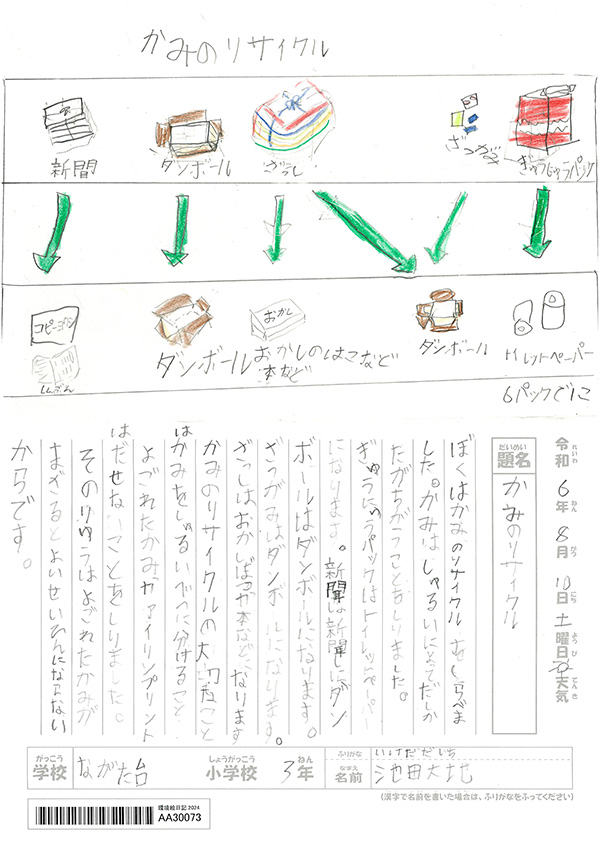 かみのリサイクル
新聞
ダンボール
ざっし
ざつがみ
ぎゅうにゅうパック
コピーようし
しんぶん
ダンボール
おかし
おかしのはこなど
本など
ダンボール
トイレットペーパー
6パックで1こ
令和6年8月10日土曜日
天気
題名
だいめい
かみのリサイクル
ぼくはかみのリサイクルをしらべま
した。かみはしゅるいによってだしか
たがちがうことをしりました。
ぎゅうにゅうパックはトイレットペーパー
になります。新聞は新聞しにダン
ボールはダンボールになります。
ざつがみはダンボールになります。
ざっしはおかしばこや本などになります
かみのリサイクルの大切なこと
はかみをしゅるいべつに分けること、
よごれたかみやアイリンプリント
はだせないことをしりました。
そのりゆうはよごれたかみが
まざるとよいせいひんにならない
からです。
がっこう
学校
ながた台
しょうがっこう
小学校
3年
ねん
ふりがな
いけだだいち
なまえ
名前
池田大地
(漢字で名前を書いた場合は、ふりがなをふってください)
環境絵日記 2024
AA30073